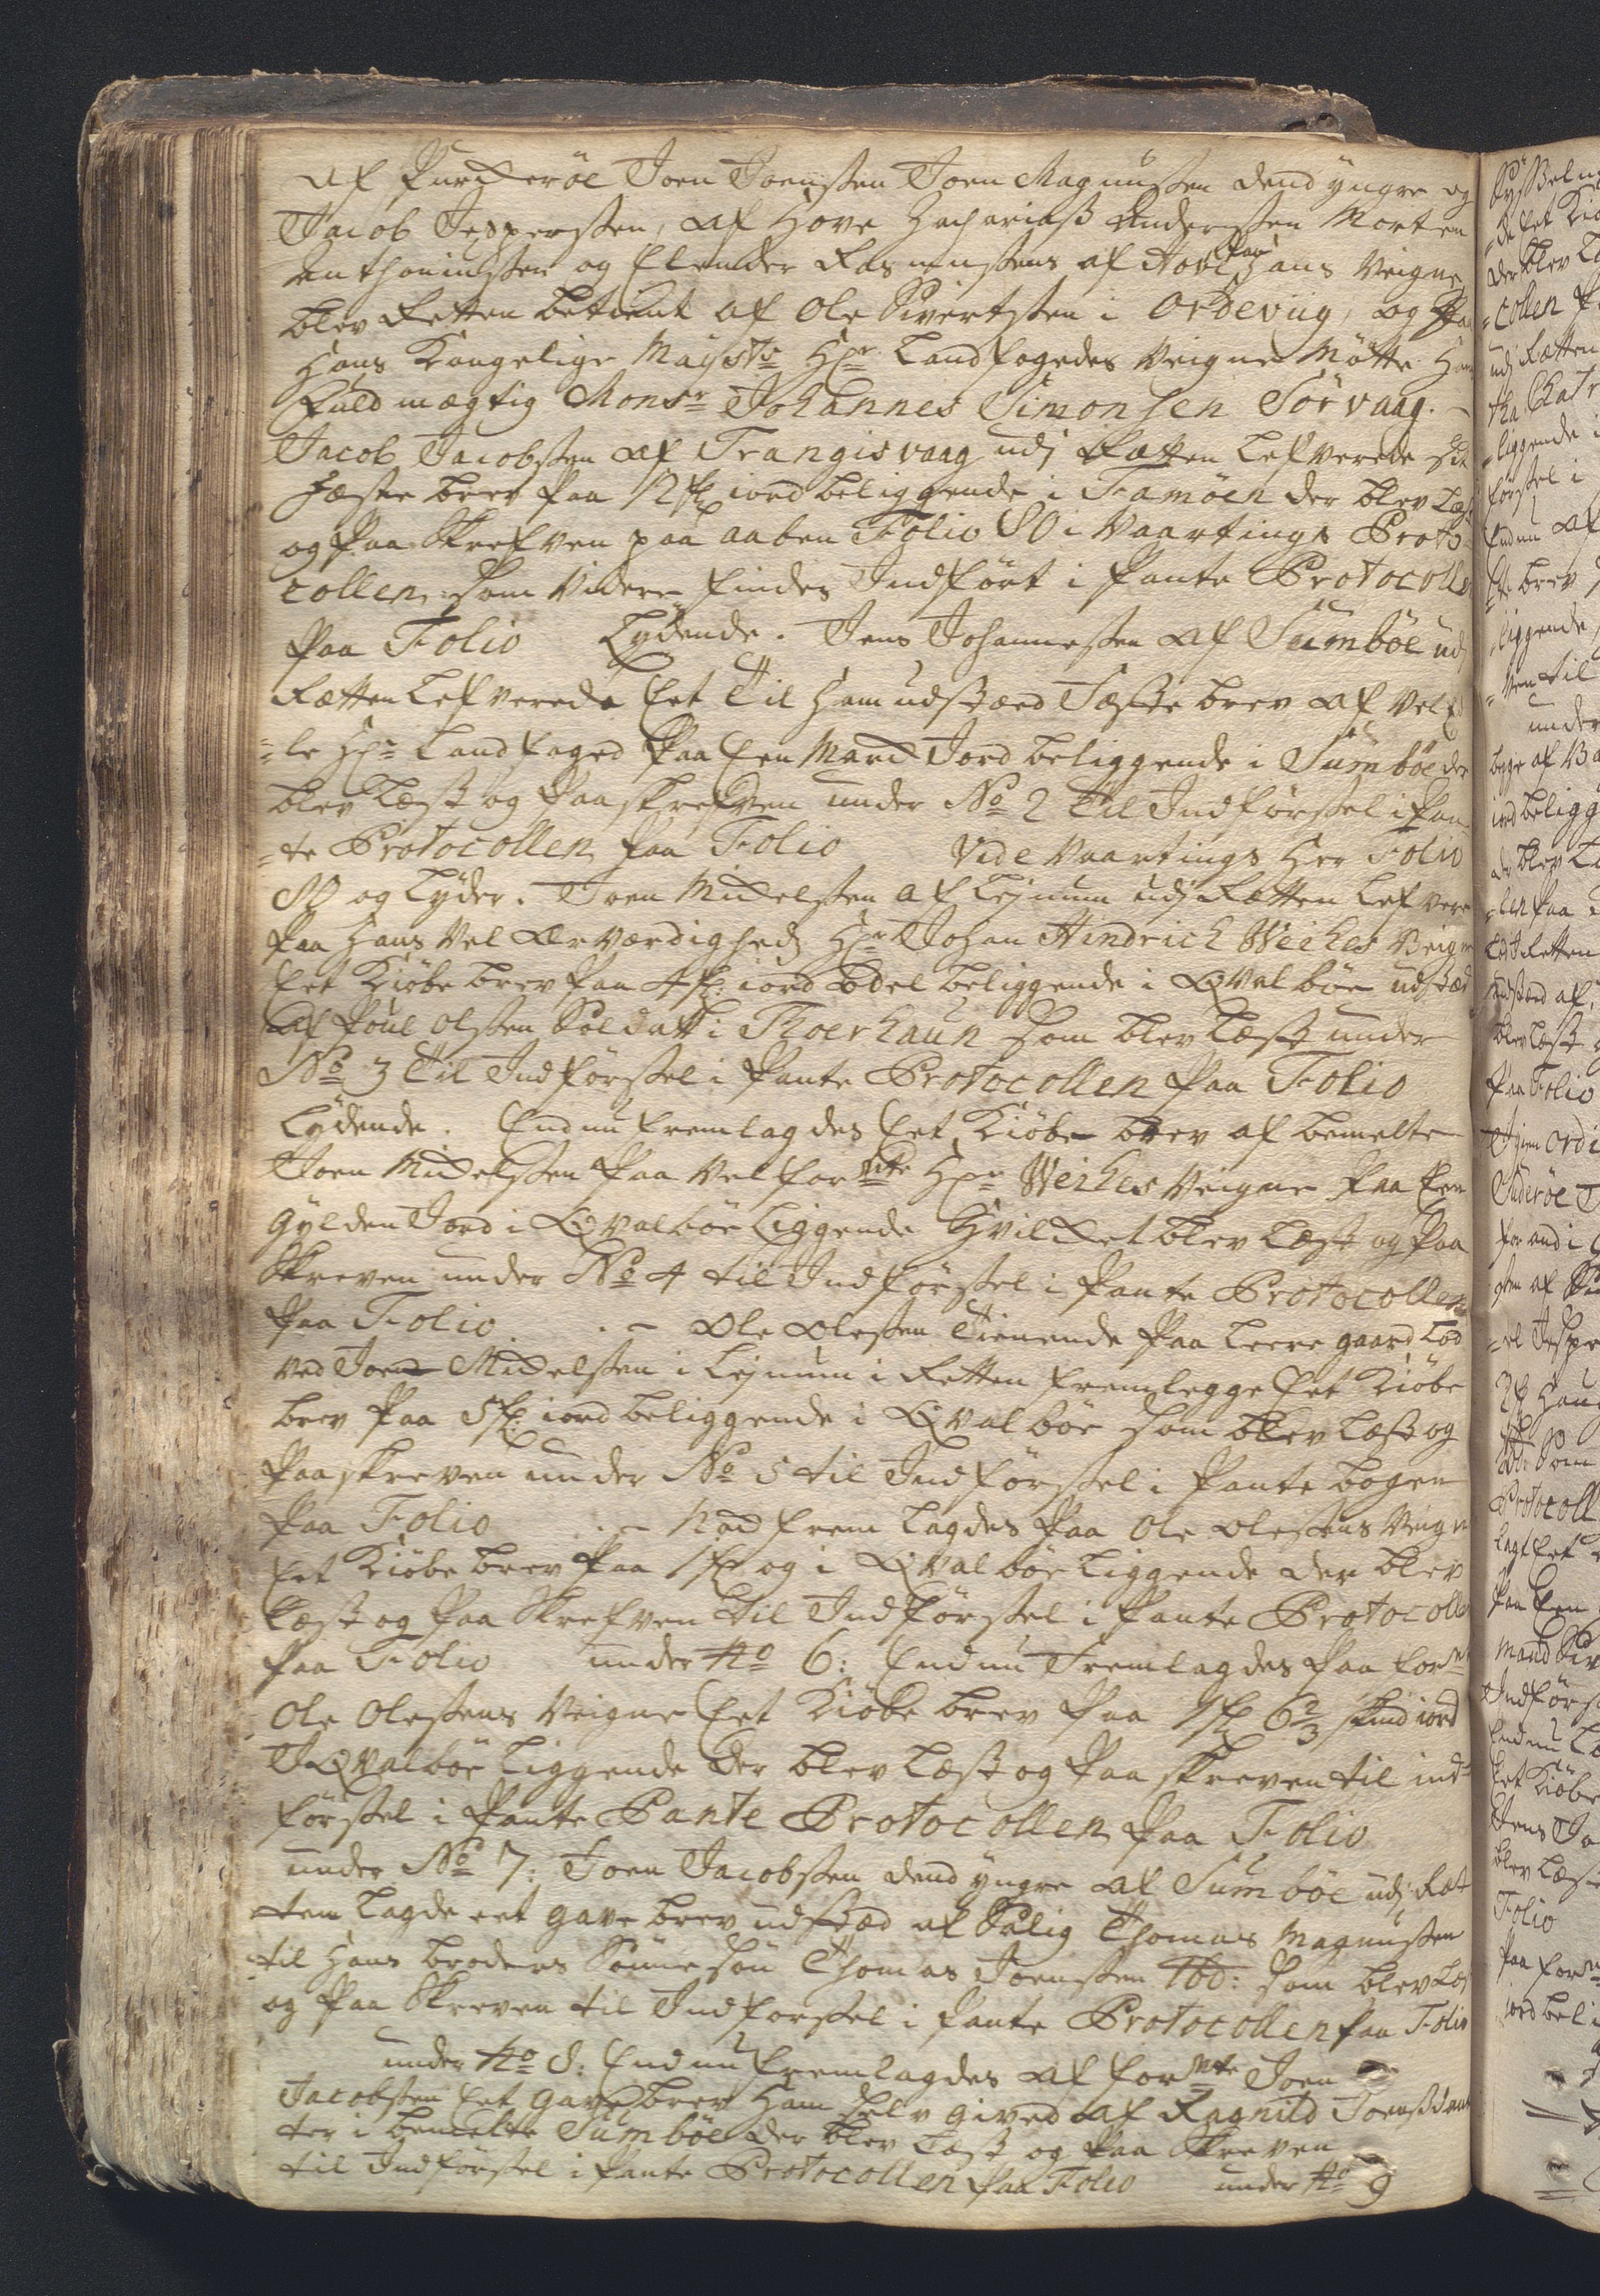 af Purckeröe Joen Joensen Joen Magnussen dend yngre og
Jacob Jespersen, af Hove Zacharias Andersen Morten
Anthoniussen og Elender Rasmussens af Hove paa Hans Veigne
blev Retten betient af Ole Sivertsen i Ordeviig, og paa
Hans Kongelige Mayts Hr Landfogedes Veigne Mötte Hans
Fuldmægtig Monsr Johannes Simonsen Sörvaag. –
Jacob Jacobsen af Trangisvaag udj Retten Lefverede sit
Fæste brev paa 12 sk iord beliggende i Famöen der blev Læst
og paa Skrefven paa aaben Folio 80 i Vaartings Proto-
collen, som Videre findes Indfört i Pante Protocollen
paa Folio Lÿdende. Jens Johannessen af Sumböe udj
Retten Lefverede Eet Til ham udstæd Fæste brev af Vel Ed
=le Hr Landfoged paa Een March Jord beliggende i Sumböe der
blev Læst og Paaskrefven under No 2 Til Indförsel i Pan
=te Protocollen paa Folio Vide Vaartings Her Folio
80 og Lÿder. Joen Michelsen af Lejnum udj Retten Lefvere
paa Hans Vel Ærværdigheds Hr Johan Hindrich Weihes Veigne
Eet Kiöbe brev paa 4 sk: iord Odel beliggende i Qvalböe udstæd
af Poul Olsen Soldatt i Thorshaun som blev Læst under
No 3 Til Indförsel i Pante Protocollen paa Folio
Lÿdende. Endnu fremlagdes Eet Kiöbe brev af bemelte
Joen Michelsen paa Velforbte Hr Weihes Veigne paa Een
Gylden Jord i Qvalböe Liggende Hvilcket blev Læst og paa
Skreven under No 4 til Indförsel i Pante Protocollen
paa Folio . – Ole Olesen Tienende paa Leere gaard Lod
ved Joen Michelsen i Lejnum i Retten fremlegge Eet Kiöbe
brev paa 5 sk: iord beliggende i Qvalböe som blev Læst og
paaskreven under No 5 til Indförsel i Pante bogen
paa Folio . – Nock frem Lagdes paa Ole Olesens Veigne
Eet Kiöbe brev paa 1 sk og i Qvalböe Liggende der blev
Læst og paa Skrefven til Indförsel i Pante Protocollen
paa Folio under No 6: Endnu Fremlagdes paa forn
Ole Olesens Veigne Eet Kiöbe brev paa 1 sk 6 2/3 skind iord
I Qvalböe Liggende der blev Læst og paa skreven til ind=
försel i Pante Pante Protocollen paa Folio
under No 7: Joen Jacobsen dend yngre af Sumböe udj Ret
ten Lagde eet gave brev udstæd af Salig Thomas Magnussen
til hans broders Sönne sön Thomas Joensen som blev Læst
og paa Skreven til Indförsel i Pante Protocollen paa Folio
under No 8: Endnu fremlagdes af formte Joen
Jacobsen Eet gave brev ham selv gived af Ragnild Joensdaat
ter i bemelte Sumböe der blev Læst og paa Skreven
til Indförsel i Pante Protocollen paa Folio under No 9